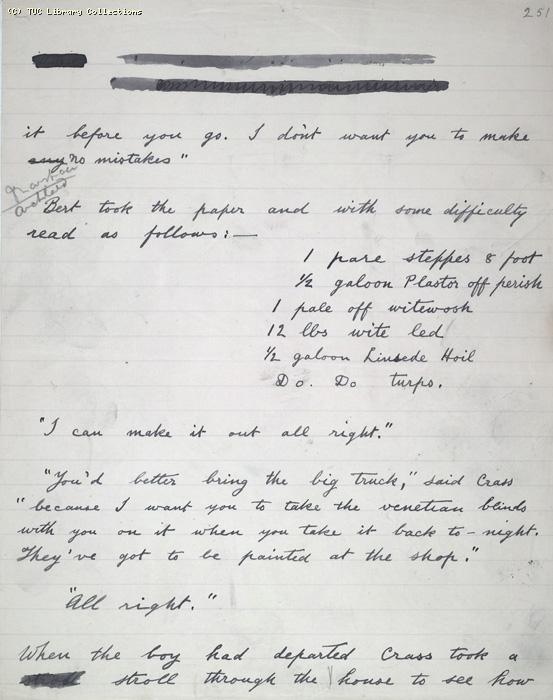 (C) TUC Library Collections
251
it before you go. I don't want you to make
any no mistakes"
Bert took the paper and with some difficulty
read as follows:—
1 pare steppes 8 foot
½ galoon Plastor off perish
1 pale off witewosh
12 lbs wite led
½ galoon Linsede Hoil
Do. Do turps.
"I can make it out all right."
"You'd better bring the big truck," said Crass
"because I want you to take the venetian blinds
with you on it when you take it back to-night.
They've got to be painted at the shop."
"All right."
When the boy had departed Crass took a
stroll through the house to see how